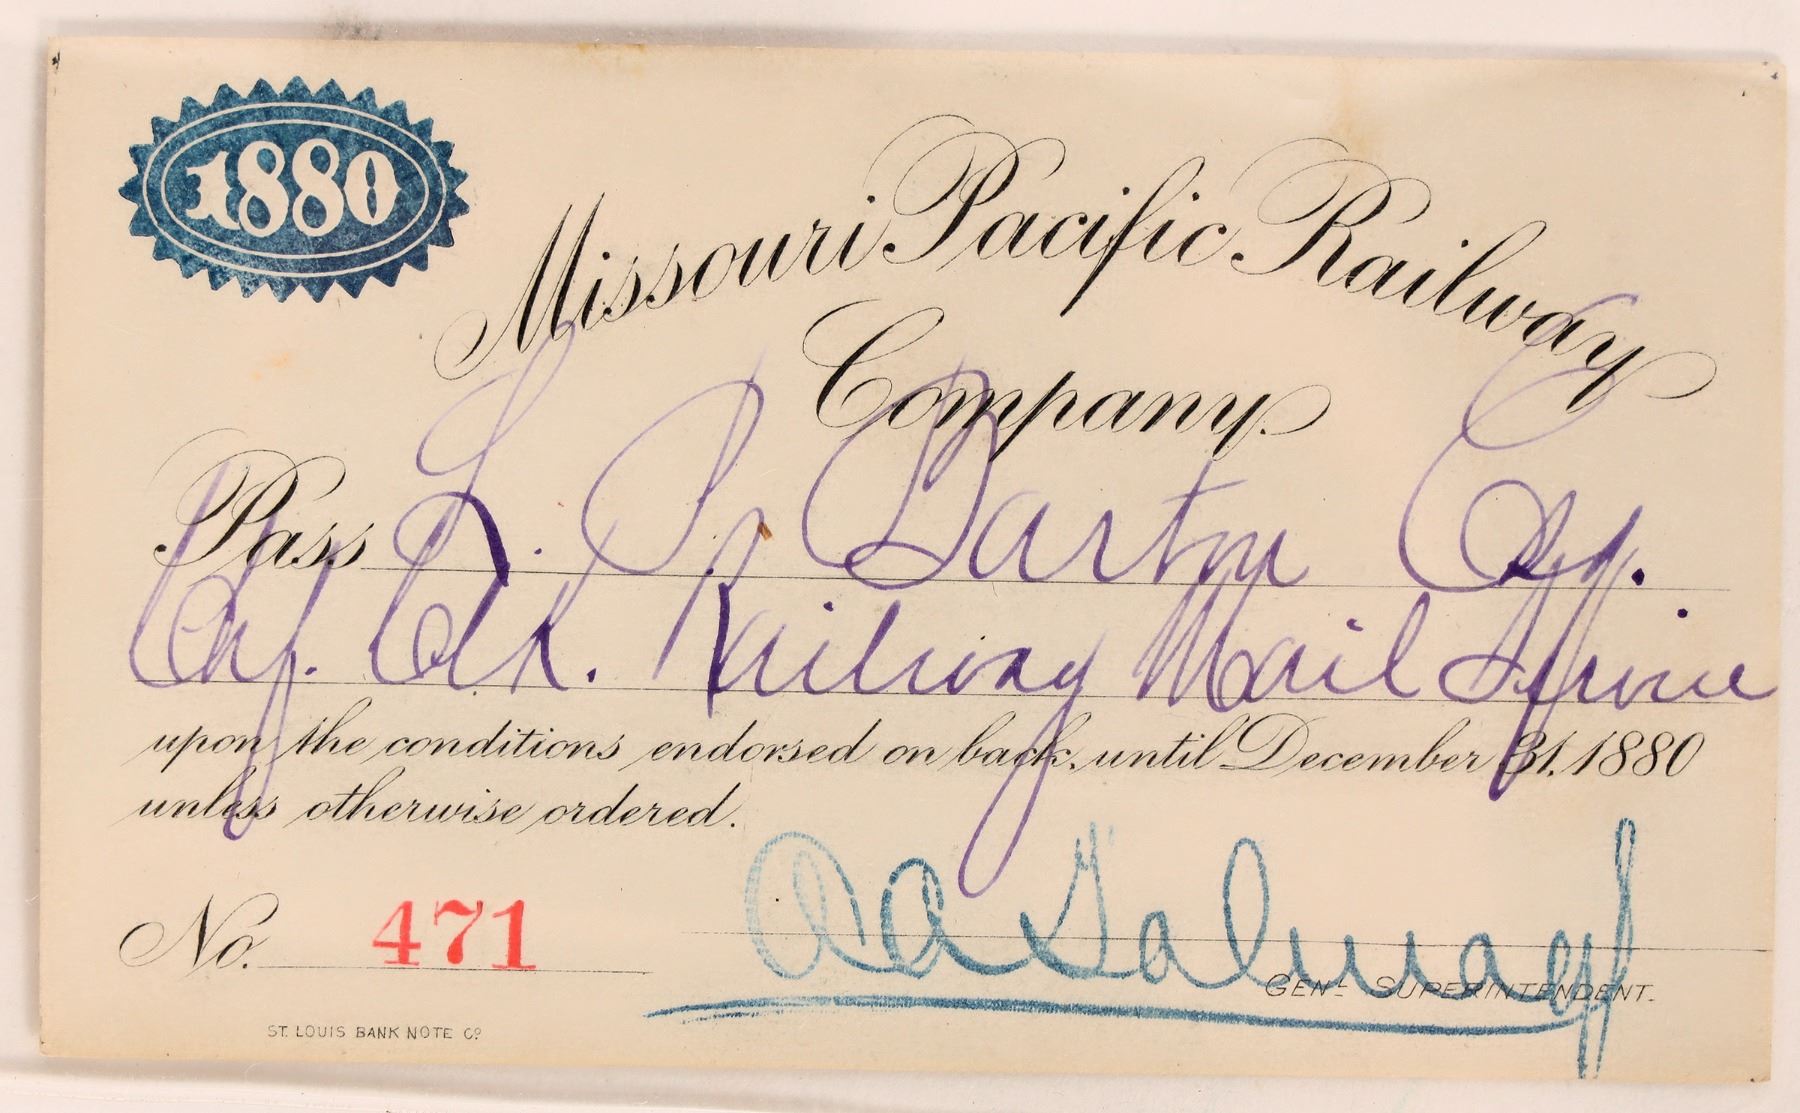 1880
Missouri Pacific Railway
Company.
Pass L. P. Barton Esq.
Chf. Clk. Railway Mail Service
upon the conditions endorsed on back, until December 31, 1880
unless otherwise ordered.
No. 471
A A Talmage
GENL SUPERINTENDENT.
ST. LOUIS BANK NOTE CO.